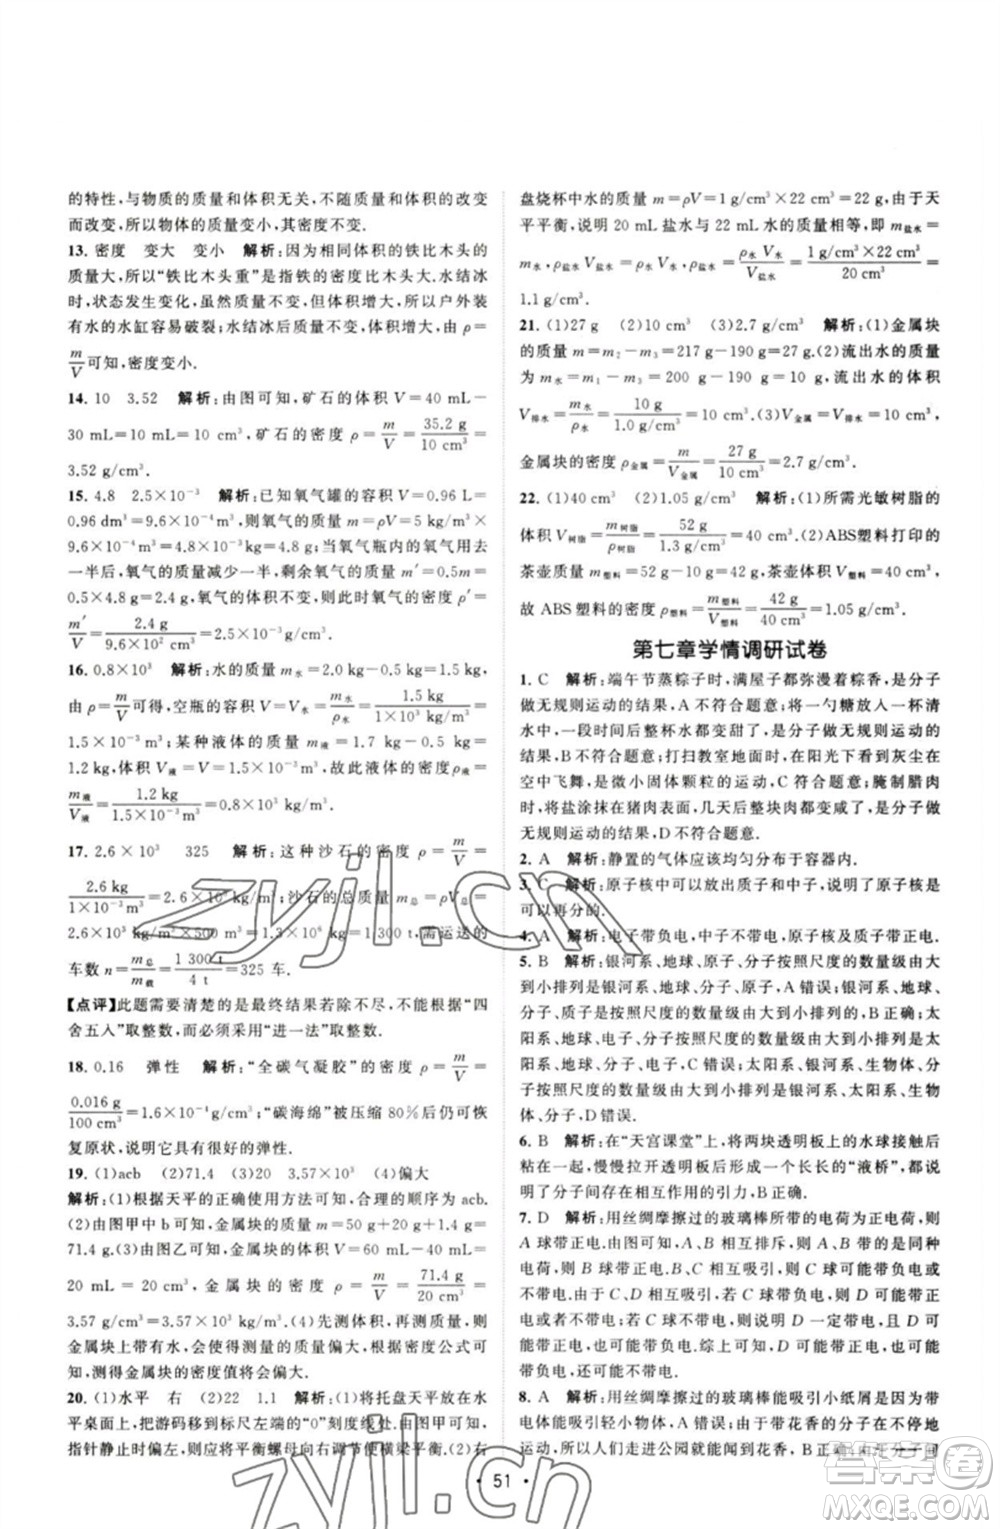 的特性,与物质的质量和体积无关,不随质量和体积的改变
而改变,所以物体的质量变小,其密度不变.
13. 密度 变大 变小 解析:因为相同体积的铁比木头的
质量大,所以“铁比木头重”是指铁的密度比木头大;水结冰
时,状态发生变化,虽然质量不变,但体积增大,所以户外装
有水的水缸容易破裂;水结冰后质量不变,体积增大,由 ρ=
m/V可知,密度变小.
14. 10 3.52 解析:由图可知,矿石的体积 V=40 mL-
30 mL=10 mL=10 cm³,矿石的密度 ρ=m/V=35.2 g/10 cm³=
3.52 g/cm³.
15. 4.8 2.5×10⁻³ 解析:氧气罐的容积 V=0.96 L=
0.96 dm³=9.6×10⁻⁴ m³,则氧气的质量 m=ρV=5 kg/m³×
9.6×10⁻⁴ m³=4.8×10⁻³ kg=4.8 g;当氧气瓶内的氧气用去
一半后,氧气的质量减少一半,剩余氧气的质量 m′=0.5m=
0.5×4.8 g=2.4 g;氧气的体积不变,则此时氧气的密度 ρ′=
m′/V=2.4 g/9.6×10² cm³=2.5×10⁻³ g/cm³.
16. 0.8×10³ 解析:水的质量 m水=2.0 kg-0.5 kg=1.5 kg,
由 ρ=m/V可得,空瓶的容积 V=V水=m水/ρ水=1.5 kg/1×10³ kg/m³=
1.5×10⁻³ m³;某种液体的质量 m液=1.7 kg-0.5 kg=
1.2 kg,液体的体积 V液=V=1.5×10⁻³ m³,故该液体的密度 ρ液=
m液/V液=1.2 kg/1.5×10⁻³ m³=0.8×10³ kg/m³.
17. 2.6×10³ 325 解析:这种沙石的密度 ρ=m/V=
2.6 kg/1×10⁻³ m³=2.6×10³ kg/m³;沙石的总质量 m总=ρV总=
2.6×10³ kg/m³×500 m³=1.3×10⁶ kg=1 300 t,需运送的
车数 n=m总/m载=1 300 t/4 t=325 车.
【点评】此题需要清楚的是最终结果若除不尽,不能根据“四
舍五入”取整数,而必须采用“进一法”取整数.
18. 0.16 弹性 解析:“全碳气凝胶”的密度 ρ=m/V=
0.016 g/100 cm³=1.6×10⁻⁴ g/cm³;“碳海绵”被压缩 80%后仍可恢
复原状,说明它具有很好的弹性.
19. (1)acb (2)71.4 (3)20 3.57×10³ (4)偏大
解析:(1)根据天平的正确使用方法可知,合理的顺序为 acb.
(2)由图甲中 b 可知,金属块的质量 m=50 g+20 g+1.4 g=
71.4 g.(3)由图乙可知,金属块的体积 V=60 mL-40 mL=
20 mL=20 cm³,金属块的密度 ρ=m/V=71.4 g/20 cm³=
3.57 g/cm³=3.57×10³ kg/m³.(4)先测体积,再测质量,则
金属块上带有水,会导致所测质量偏大,根据密度公式可
知,测得金属块的密度值将会偏大.
20. (1)水平 右 (2)22 1.1 解析:(1)将托盘天平放在水
平桌面上,把游码移到标尺左端的“0”刻度线处.由图甲可知,
指针静止时偏左,应将平衡螺母向右调节使横梁平衡.(2)右
盘烧杯中水的质量 m=ρV=1 g/cm³×22 cm³=22 g.由于天
平平衡,说明 20 mL 盐水与 22 mL水的质量相等,即 m盐水=
m水,ρ盐水V盐水=ρ水V水,则ρ盐水=ρ水V水/V盐水=1 g/cm³×22 cm³/20 cm³=
1.1 g/cm³.
21. (1)27 g (2)10 cm³ (3)2.7 g/cm³ 解析:(1)金属块
的质量 m=m₂-m₃=217 g-190 g=27 g.(2)流出水的质量
为 m水=m₁-m₃=200 g-190 g=10 g,流出水的体积
V排水=m水/ρ水=10 g/1.0 g/cm³=10 cm³.(3)V金属=V排水=10 cm³,
金属块的密度 ρ金属=m/V金属=27 g/10 cm³=2.7 g/cm³.
22. (1)40 cm³ (2)1.05 g/cm³ 解析:(1)所需光敏树脂的
体积 V树脂=m树脂/ρ树脂=52 g/1.3 g/cm³=40 cm³.(2)ABS塑料打印的
茶壶质量 m塑料=52 g-10 g=42 g,茶壶体积 V塑料=V树脂=40 cm³,
故 ABS 塑料的密度 ρ塑料=m塑料/V塑料=42 g/40 cm³=1.05 g/cm³.
第七章学情调研试卷
1. C 解析:端午节蒸粽子时,满屋子都弥漫着粽香,是分子
做无规则运动的结果,A 不符合题意;将一勺糖放入一杯清
水中,一段时间后整杯水都变甜了,是分子做无规则运动的
结果,B 不符合题意;打扫教室地面时,在阳光下看到灰尘在
空中飞舞,是微小固体颗粒的运动,C 符合题意;腌制腊肉
时,将盐涂抹在猪肉表面,几天后整块肉都变咸了,是分子做
无规则运动的结果,D 不符合题意.
2. A 解析:静置的气体应该均匀分布于容器内.
3. C 解析:原子核中可以放出质子和中子,说明原子核是
可以再分的.
4. A 解析:电子带负电,中子不带电,原子核及质子带正电.
5. B 解析:银河系、地球、原子、质子按照尺度的数量级由大
到小排列,A 错误;太阳系、地球、分子、原子按照尺度的数量级由大到小排列,B正确
6. B 解析:在“天宫课堂”上,将两块透明板上的水球接触后
粘在一起,慢慢拉开透明板,中间形成长长的“液桥”,说明
分子间存在相互作用的引力,B 正确.
7. D 解析:用丝绸摩擦过的玻璃棒所带的电荷为正电荷,则
A 球带正电.由图可知,A、B 相互排斥,则 B 带的是同种
电荷,即 B 球带正电;B、C 相互吸引,则 C 球可能带负电或
不带电;由于 C、D 相互吸引,若 C 球带负电,则 D 可能带正
电或不带电;若 C 球不带电,则 D 一定带电,可能带正电,也
可能带负电.综上可知,C 可能带负电、可能不带电,D 可能带
正电、可能带负电、可能不带电.
8. A 解析:用丝绸摩擦过的玻璃棒能吸引小纸屑,是因为带
电体能吸引轻小物体,A 符合题意;带花香的分子在不停地
运动,所以人们走进公园能闻到花香,B
· 51 ·
zyjl.cn
zyjl.cn
答案圈
MXQE.COM